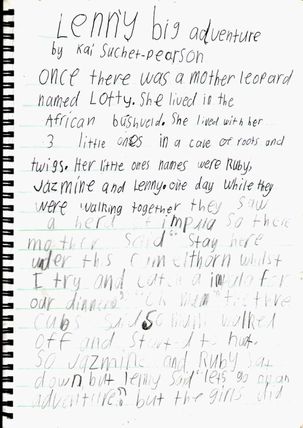 Lenny big adventure
by Kai Suchet-Pearson
once there was a mother leopard
named Lotty. She lived in the
African bushveld. She lived with her
3 little ones in a cave of roots and
twigs. Her little ones names were Ruby,
Jazmine and Lenny. one day while they
were walking together they saw
a herd impala So there
mother said "Stay here
under this camelthorn whilst
I try and catch a for
our dinner" the three
cubs said So mum walked
off and started to hunt.
So Jazmine and Ruby sat
down but lenny said "lets go on an
adventure" but the girls did